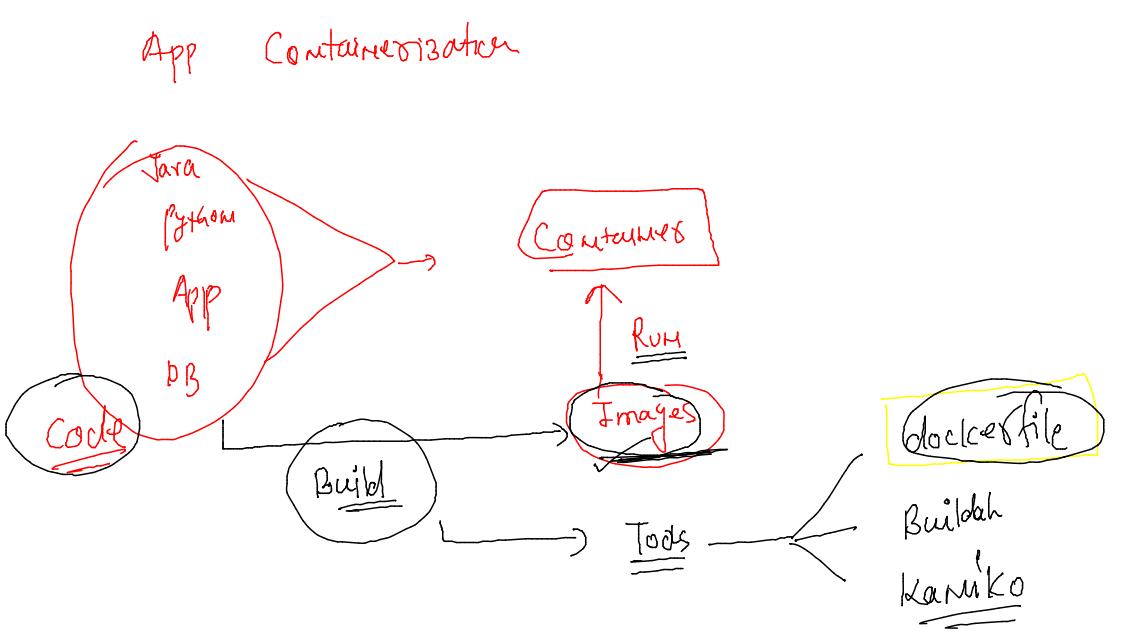 App Containerization
Java
Python
App
DB
Code
Container
Run
Images
Build
Tools
dockerfile
Buildah
Kaniko